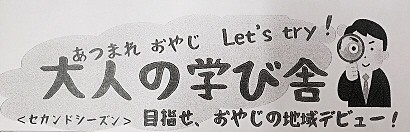 あつまれ おやじ Let's try!
大人の学び舎
<セカンドシーズン> 目指せ、おやじの地域デビュー!